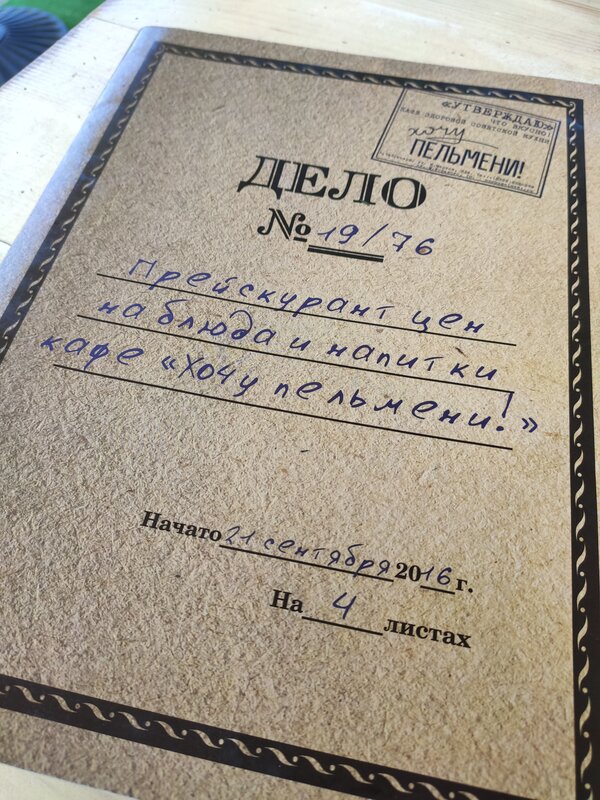 «УТВЕРЖДАЮ»
ЧТО ВКУСНО!
КАФЕ ЗДОРОВОЙ СОВЕТСКОЙ КУХНИ
хочу
ПЕЛЬМЕНИ!
ДЕЛО
№ 19/76
Прейскурант цен
на блюда и напитки
кафе «Хочу пельмени!»
Начато 21 сентября 2016 г.
На 4 листах